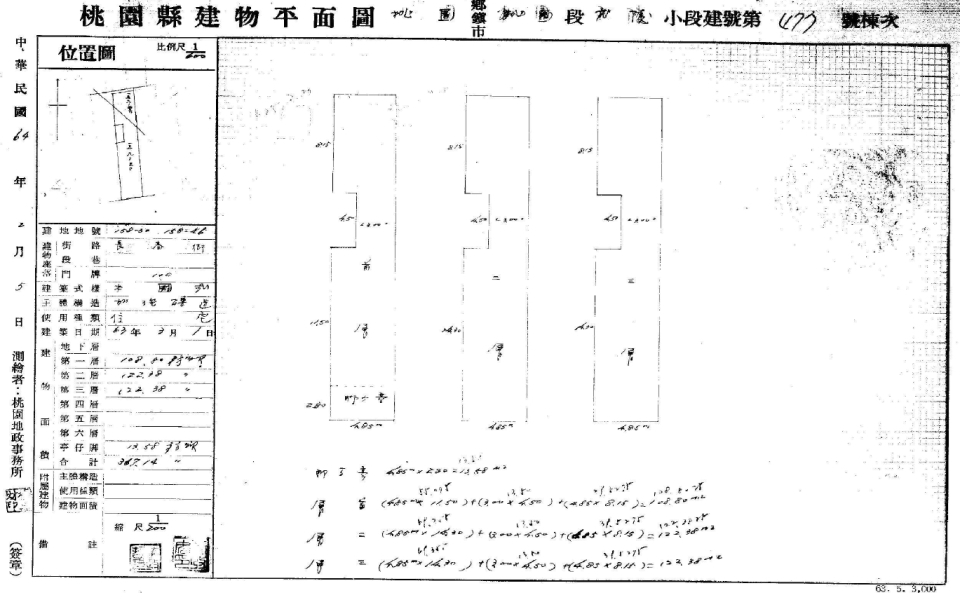 桃園縣建物平面圖 桃園 鄉鎮市 段 小段建號第 477 號棟次
中華民國 64 年 2 月 5 日 測繪者：桃園地政事務所 （簽章）
位置圖 比例尺 1/200
建地地號 158-50 158-46
建物座落 街路 長春街
段巷
門牌 100
建築式樣 本國式
主體構造 加強磚造
使用種類 住宅
建築日期 63年3月1日
建物面積
地下層
第一層 108.80 平方公尺
第二層 122.38 〃
第三層 122.38 〃
第四層
第五層
第六層
亭仔腳 13.58 平方公尺
合計 367.14 〃
附屬建物
主體構造
使用種類
建物面積
縮尺 1/200
備註
8.15 8.15 8.15
4.50 3.00 4.50 3.00 4.50 3.00
首層 二層 三層
11.50 14.30 14.30
2.80
4.85 4.85 4.85
4.85 × 2.80 = 13.58 m2
層 首 (4.85 × 11.50) + (3.00 × 4.50) + (4.85 × 8.15) = 108.80 m2
層 二 (4.85 × 14.30) + (3.00 × 4.50) + (4.85 × 8.15) = 122.38 m2
層 三 (4.85 × 14.30) + (3.00 × 4.50) + (4.85 × 8.15) = 122.38 m2
63. 5. 3,000